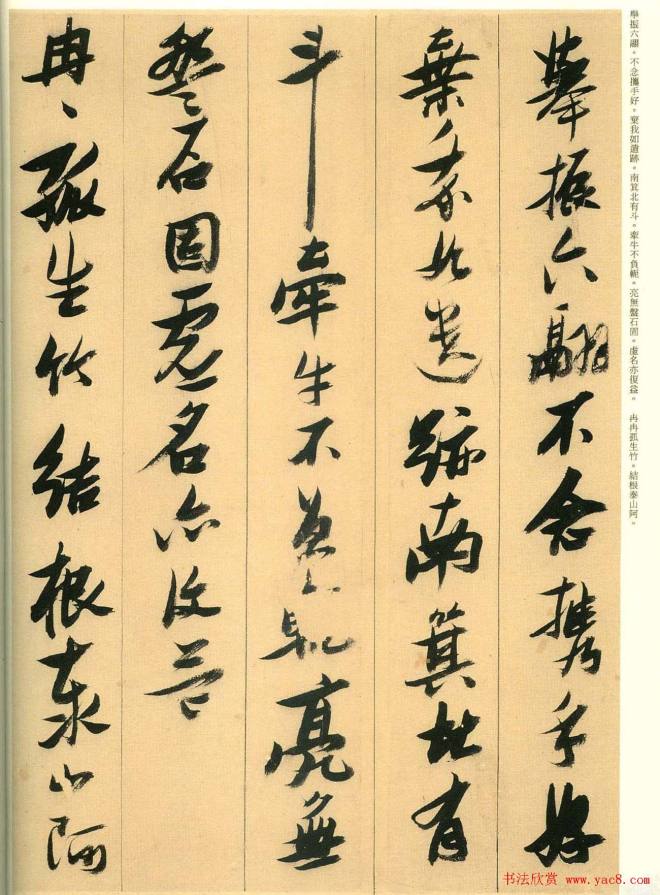 舉振六翮。不念攜手好。棄我如遺跡。南箕北有斗。牽牛不負軛。亮無盤石固。虛名亦復益。 冉冉孤生竹。結根泰山阿。
舉振六翮不念携手好
棄我如遺跡南箕北有
斗牽牛不負軛亮無
盤石固虛名亦復益
冉〻孤生竹結根泰山阿
书法欣赏 www.yac8.com